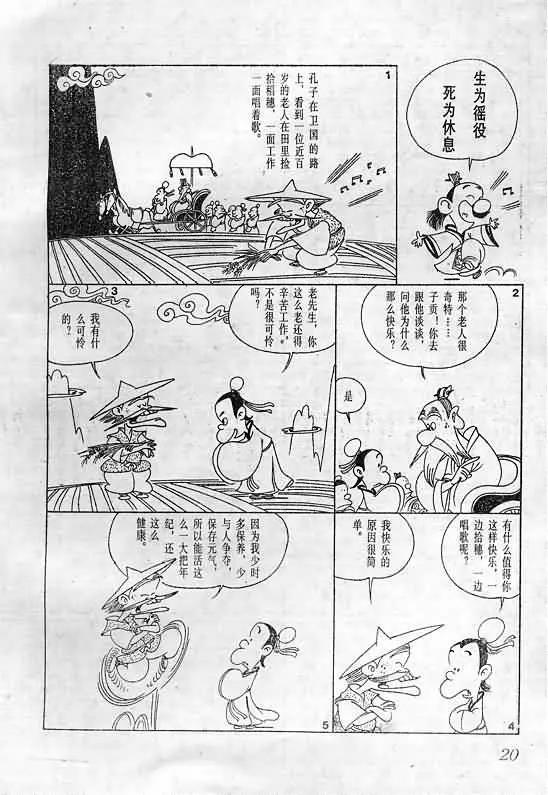 生为徭役
死为休息
1
孔子在卫国的路
上，看到一位近百
岁的老人在田里捡
拾稻穗，一面工作
一面唱着歌。
2
那个老人很
奇特……
子贡！你去
跟他谈谈，
问他为什么
那么快乐？
是
3
老先生，你
这么老还得
辛苦工作，
不是很可怜
吗？
我有什
么可怜
的？
有什么值得你
这样快乐，一
边拾穗，一边
唱歌呢？
我快乐的
原因很简
单。
4
因为我少时
多保养，少
与人争夺，
保存元气，
所以能活这
么一大把年
纪，还
这么
健康。
5
20